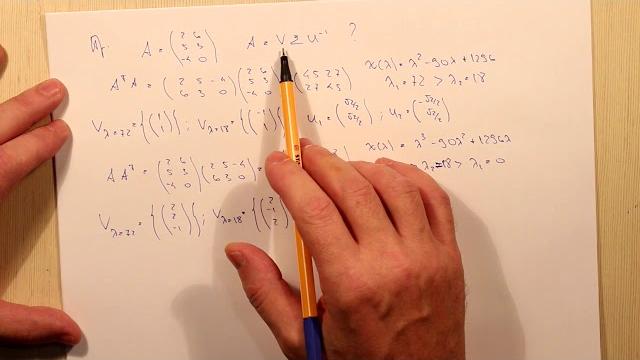 Př. A = (2 6 5 3 -4 0) A = V Σ U⁻¹ ?
AᵀA = (2 5 -4 6 3 0)(2 6 5 3 -4 0) (45 27 27 45) χ(λ) = λ² - 90λ + 1296
λ₁ = 72 > λ₂ = 18
V λ=72 = {(1 1)}; V λ=18 = {(-1 1)} u₁ = (√2/2 √2/2); u₂ = (-√2/2 √2/2)
AAᵀ = (2 6 5 3 -4 0)(2 5 -4 6 3 0) = χ(λ) = λ³ - 90λ² + 1296λ
λ₂ = 18 > λ₁ = 0
V λ=72 = {(2 2 -1)}; V λ=18 = {(2 -1 2)